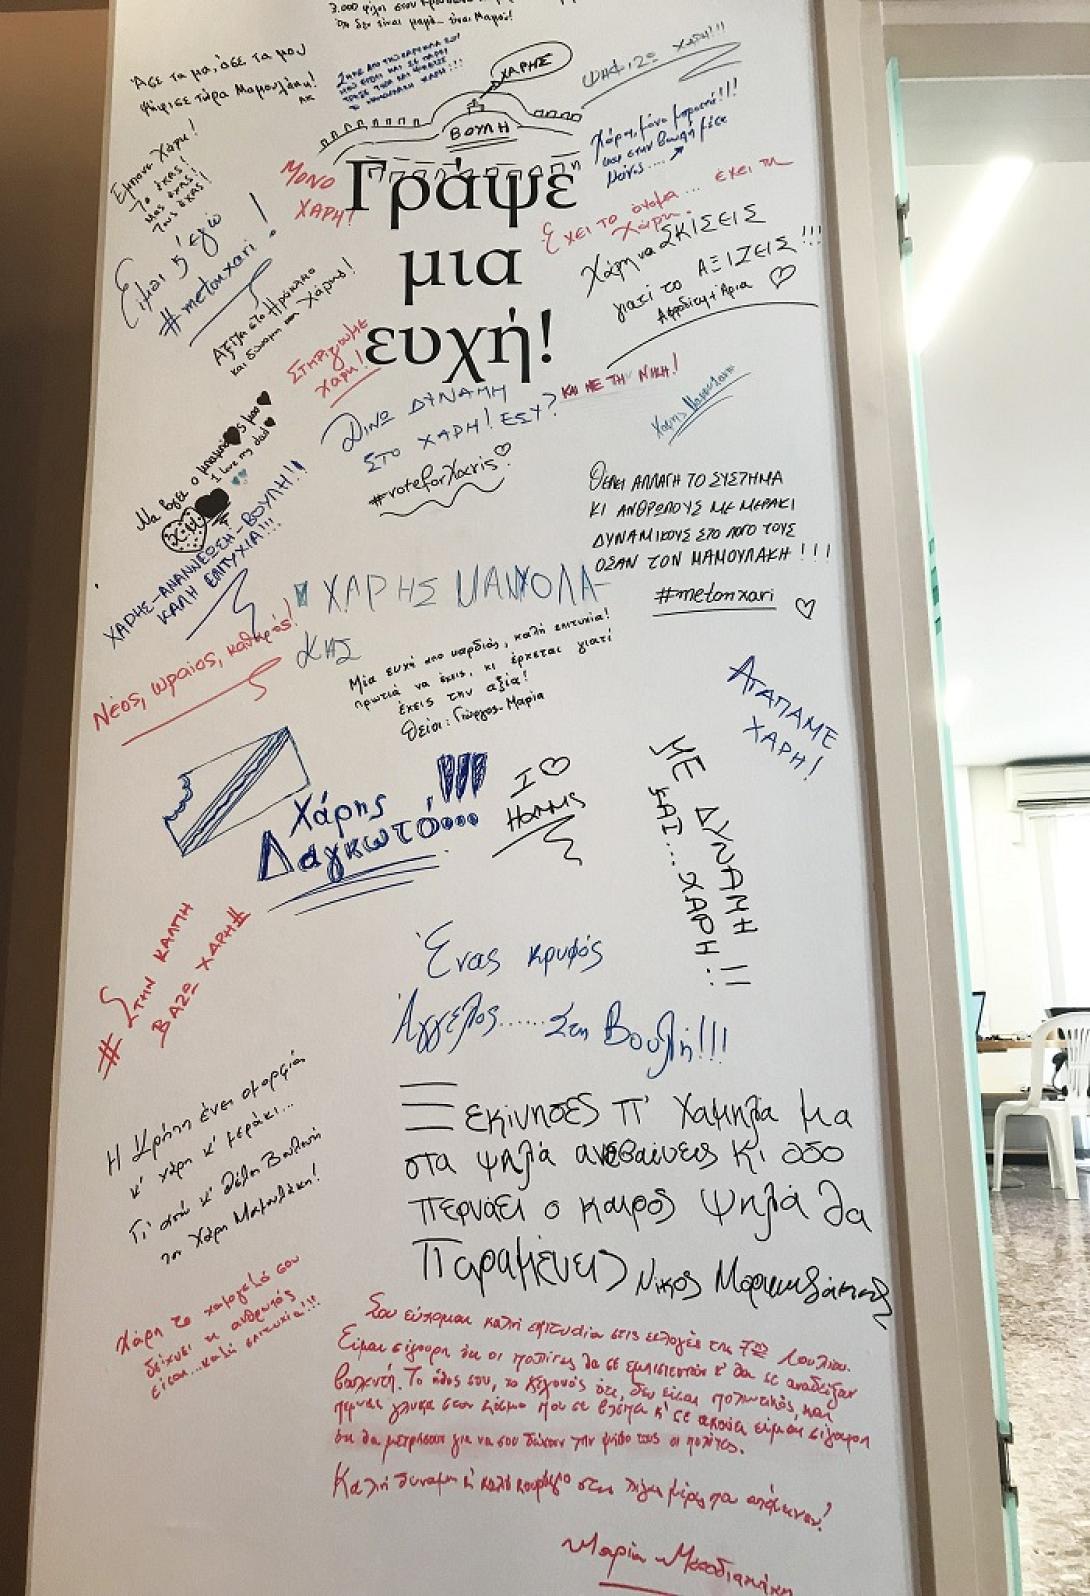 3.000 φίλοι στον
Ότι δεν είναι μαμά... είναι Μαμού!
Άσε τα μα, άσε τα μου
Ψήφισε τώρα Μαμουλάκη!
ΧΑΡΗΣ
ΒΟΥΛΗ
ΨΗΦΙΖΩ ΧΑΡΗ!!!
Χάρη, μόνο μπροστά!!!
και στην Βουλή μέσα
μόνος....
Έμπαινε Χάρη!
Το 'χεις!
Μας έχεις!
Τους έχεις!
ΜΟΝΟ
ΧΑΡΗ!
Γράψε
μια
ευχή!
Έχει το όνομα... έχει τη
Χάρη.
Χάρη να ΣΚΙΣΕΙΣ
γιατί το ΑΞΙΖΕΙΣ!!!
Αφροδίτη + Άρια
Είμαι κ' εγώ
#metonxari!
Αξίζει στο Ηράκλειο
και δύναμη και Χάρης!
ΣΤΗΡΙΖΟΥΜΕ
ΧΑΡΗ!
ΔΙΝΩ ΔΥΝΑΜΗ
ΣΤΟ ΧΑΡΗ! ΕΣΥ?
ΚΑΙ ΜΕ ΤΗ ΝΙΚΗ!
#voteforXaris
Χάρης Μαμουλάκης
Να βγει ο μπαμπάς μου
I love my dad
Χ.Μ.
ΧΑΡΗΣ-ΑΝΑΝΝΕΩΣΗ-ΒΟΥΛΗ!!
ΚΑΛΗ ΕΠΙΤΥΧΙΑ!!!
ΘΕΛΕΙ ΑΛΛΑΓΗ ΤΟ ΣΥΣΤΗΜΑ
ΚΙ ΑΝΘΡΩΠΟΥΣ ΜΕ ΜΕΡΑΚΙ
ΔΥΝΑΜΙΚΟΥΣ ΣΤΟ ΛΟΓΟ ΤΟΥΣ
ΩΣΑΝ ΤΟΝ ΜΑΜΟΥΛΑΚΗ!!!
#metonxari
ΧΑΡΗΣ
ΚΗΣ
Νέος, ωραίος, καθαρός!
Μία ευχή από καρδιάς, καλή επιτυχία!
πρωτιά να έχεις, κι έρχεται γιατί
έχεις την αξία!
Θείοι: Γιώργος-Μαρία
ΑΓΑΠΑΜΕ
ΧΑΡΗ!
Χάρης
Δαγκωτό...!!!
I
Harris
ΜΕ ΔΥΝΑΜΗ
ΚΑΙ... ΧΑΡΗ!!
# ΣΤΗΝ ΚΑΛΠΗ
ΒΑΖΩ ΧΑΡΗ#
Ένας κρυφός
Άγγελος...... Στη Βουλή!!!
Ξεκίνησες π' χαμηλά μα
στα ψηλά ανεβαίνεις κι όσο
περνάει ο καιρός ψηλά θα
Παραμένεις) Νίκος
Η Κρήτη ένει ομορφιά
κ' χάρη κ' μεράκι...
Γι' αυτό κ' θέλει Βουλευτή
τον Χάρη Μαμουλάκη!
Χάρη το χαμογελό σου
δείχνει τι άνθρωπος
είσαι... καλή επιτυχία!!!
Σου εύχομαι καλή επιτυχία στις εκλογές της 7ης Ιουλίου.
Είμαι σίγουρη ότι οι πολίτες θα σε εμπιστευτούν κ' θα σε αναδείξουν
βουλευτή. Το ήθος σου, το γεγονός ότι, δεν είσαι πολιτικός, και
περνάς γλυκα στον κόσμο που σε βλέπει κ' σε ακούει είμαι σίγουρη
ότι θα μετρήσουν για να σου δώσουν την ψήφο τους οι πολίτες.
Καλή δύναμη κ' καλό κουράγιο στις λίγες μέρες που απέμειναν!
Μαρία